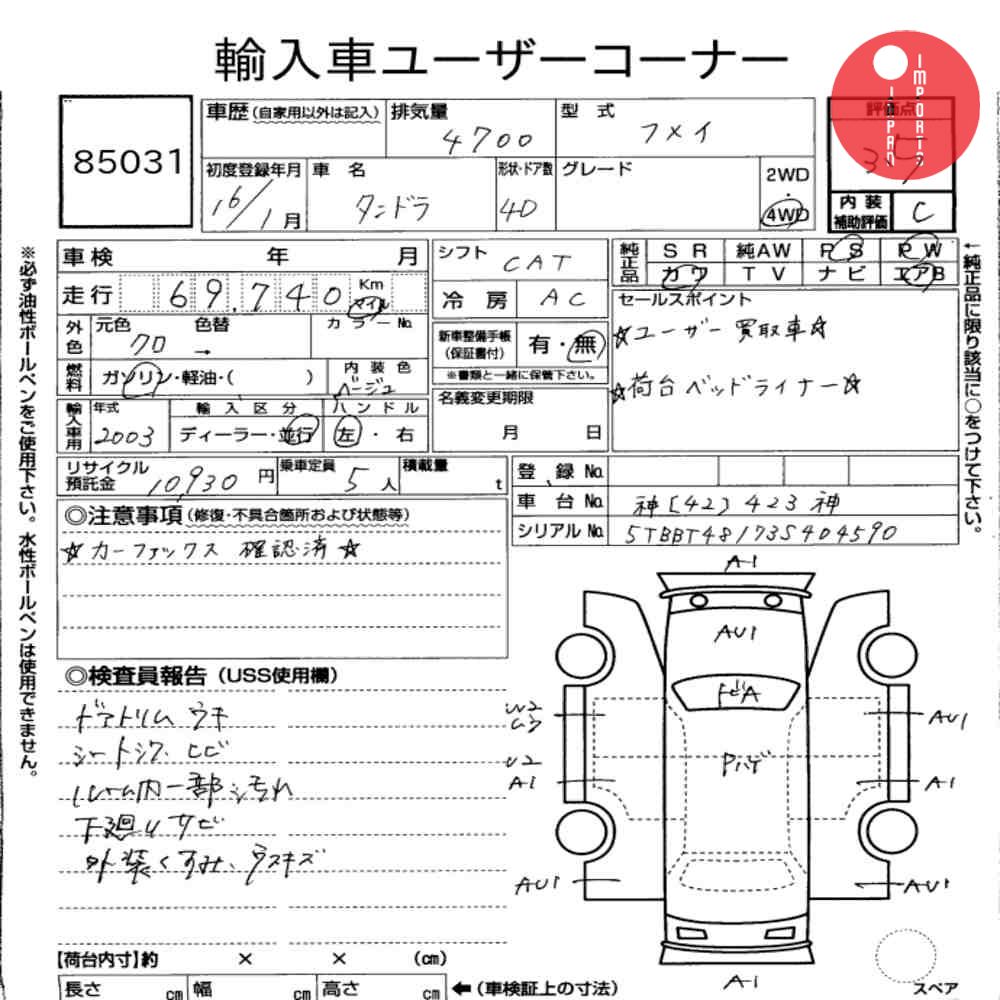 輸入車ユーザーコーナー
IMPORTS JAPAN
85031
車歴(自家用以外は記入) 排気量 4700 型式 フメイ
評価点 3.5
初度登録年月 16/1月 車名 タンドラ 形状・ドア数 4D グレード 2WD・4WD
内装補助評価 C
車検 年 月 シフト CAT 純正品 SR 純AW PS PW
カワ TV ナビ エアB
走行 69,740 Km マイル 冷房 AC
セールスポイント
外色 元色 クロ 色替 → カラーNo. 新車整備手帳(保証書付) 有・無
※書類と一緒に保管下さい。
☆ユーザー買取車☆
燃料 ガソリン・軽油・( ) 内装色 ベージュ
☆荷台ベッドライナー☆
名義変更期限 月 日
輸入車用 年式 2003 輸入区分 ディーラー・並行 ハンドル 左・右
リサイクル預託金 10,930円 乗車定員 5人 積載量 t 登録No.
車台No. 神[42]423神
シリアルNo. 5TBBT48173S404590
◎注意事項(修復・不具合箇所および状態等)
☆カーファックス 確認済☆
◎検査員報告(USS使用欄)
ドアトリムウキ
シートシワ、ヒビ
ルーム内一部汚れ
下廻りサビ
外装くすみ、ラスキズ
A1
AU1
トビA
W2
U3
AU1
Pハゲ
U2
A1
A1
AU1
AU1
A1
【荷台内寸】約 × × (cm)
長さ cm 幅 cm 高さ cm ←(車検証上の寸法)
スペア
※必ず油性ボールペンをご使用下さい。水性ボールペンは使用できません。
←純正品に限り該当に○をつけて下さい。